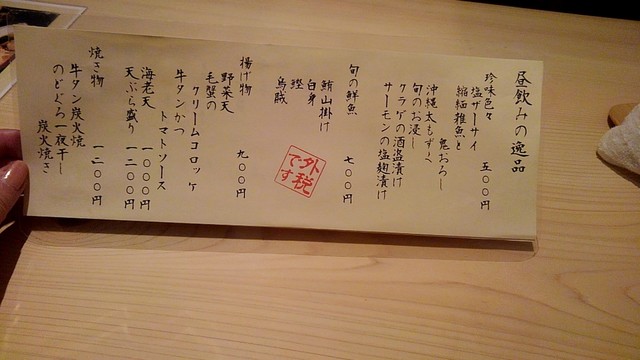 昼飲みの逸品
珍味色々 五〇〇円
塩ザーサイ
縮緬雑魚と
鬼おろし
沖縄太もずく
旬のお浸し
クラゲの酒盗漬け
サーモンの塩麹漬け
旬の鮮魚 七〇〇円
鮪山掛け
白身
鰹
烏賊
外税
です
揚げ物 九〇〇円
野菜天
毛蟹の
クリームコロッケ
牛タンかつ
トマトソース
海老天 一〇〇〇円
天ぷら盛り 一二〇〇円
焼き物 一二〇〇円
牛タン炭火焼
のどぐろ一夜干し
炭火焼き